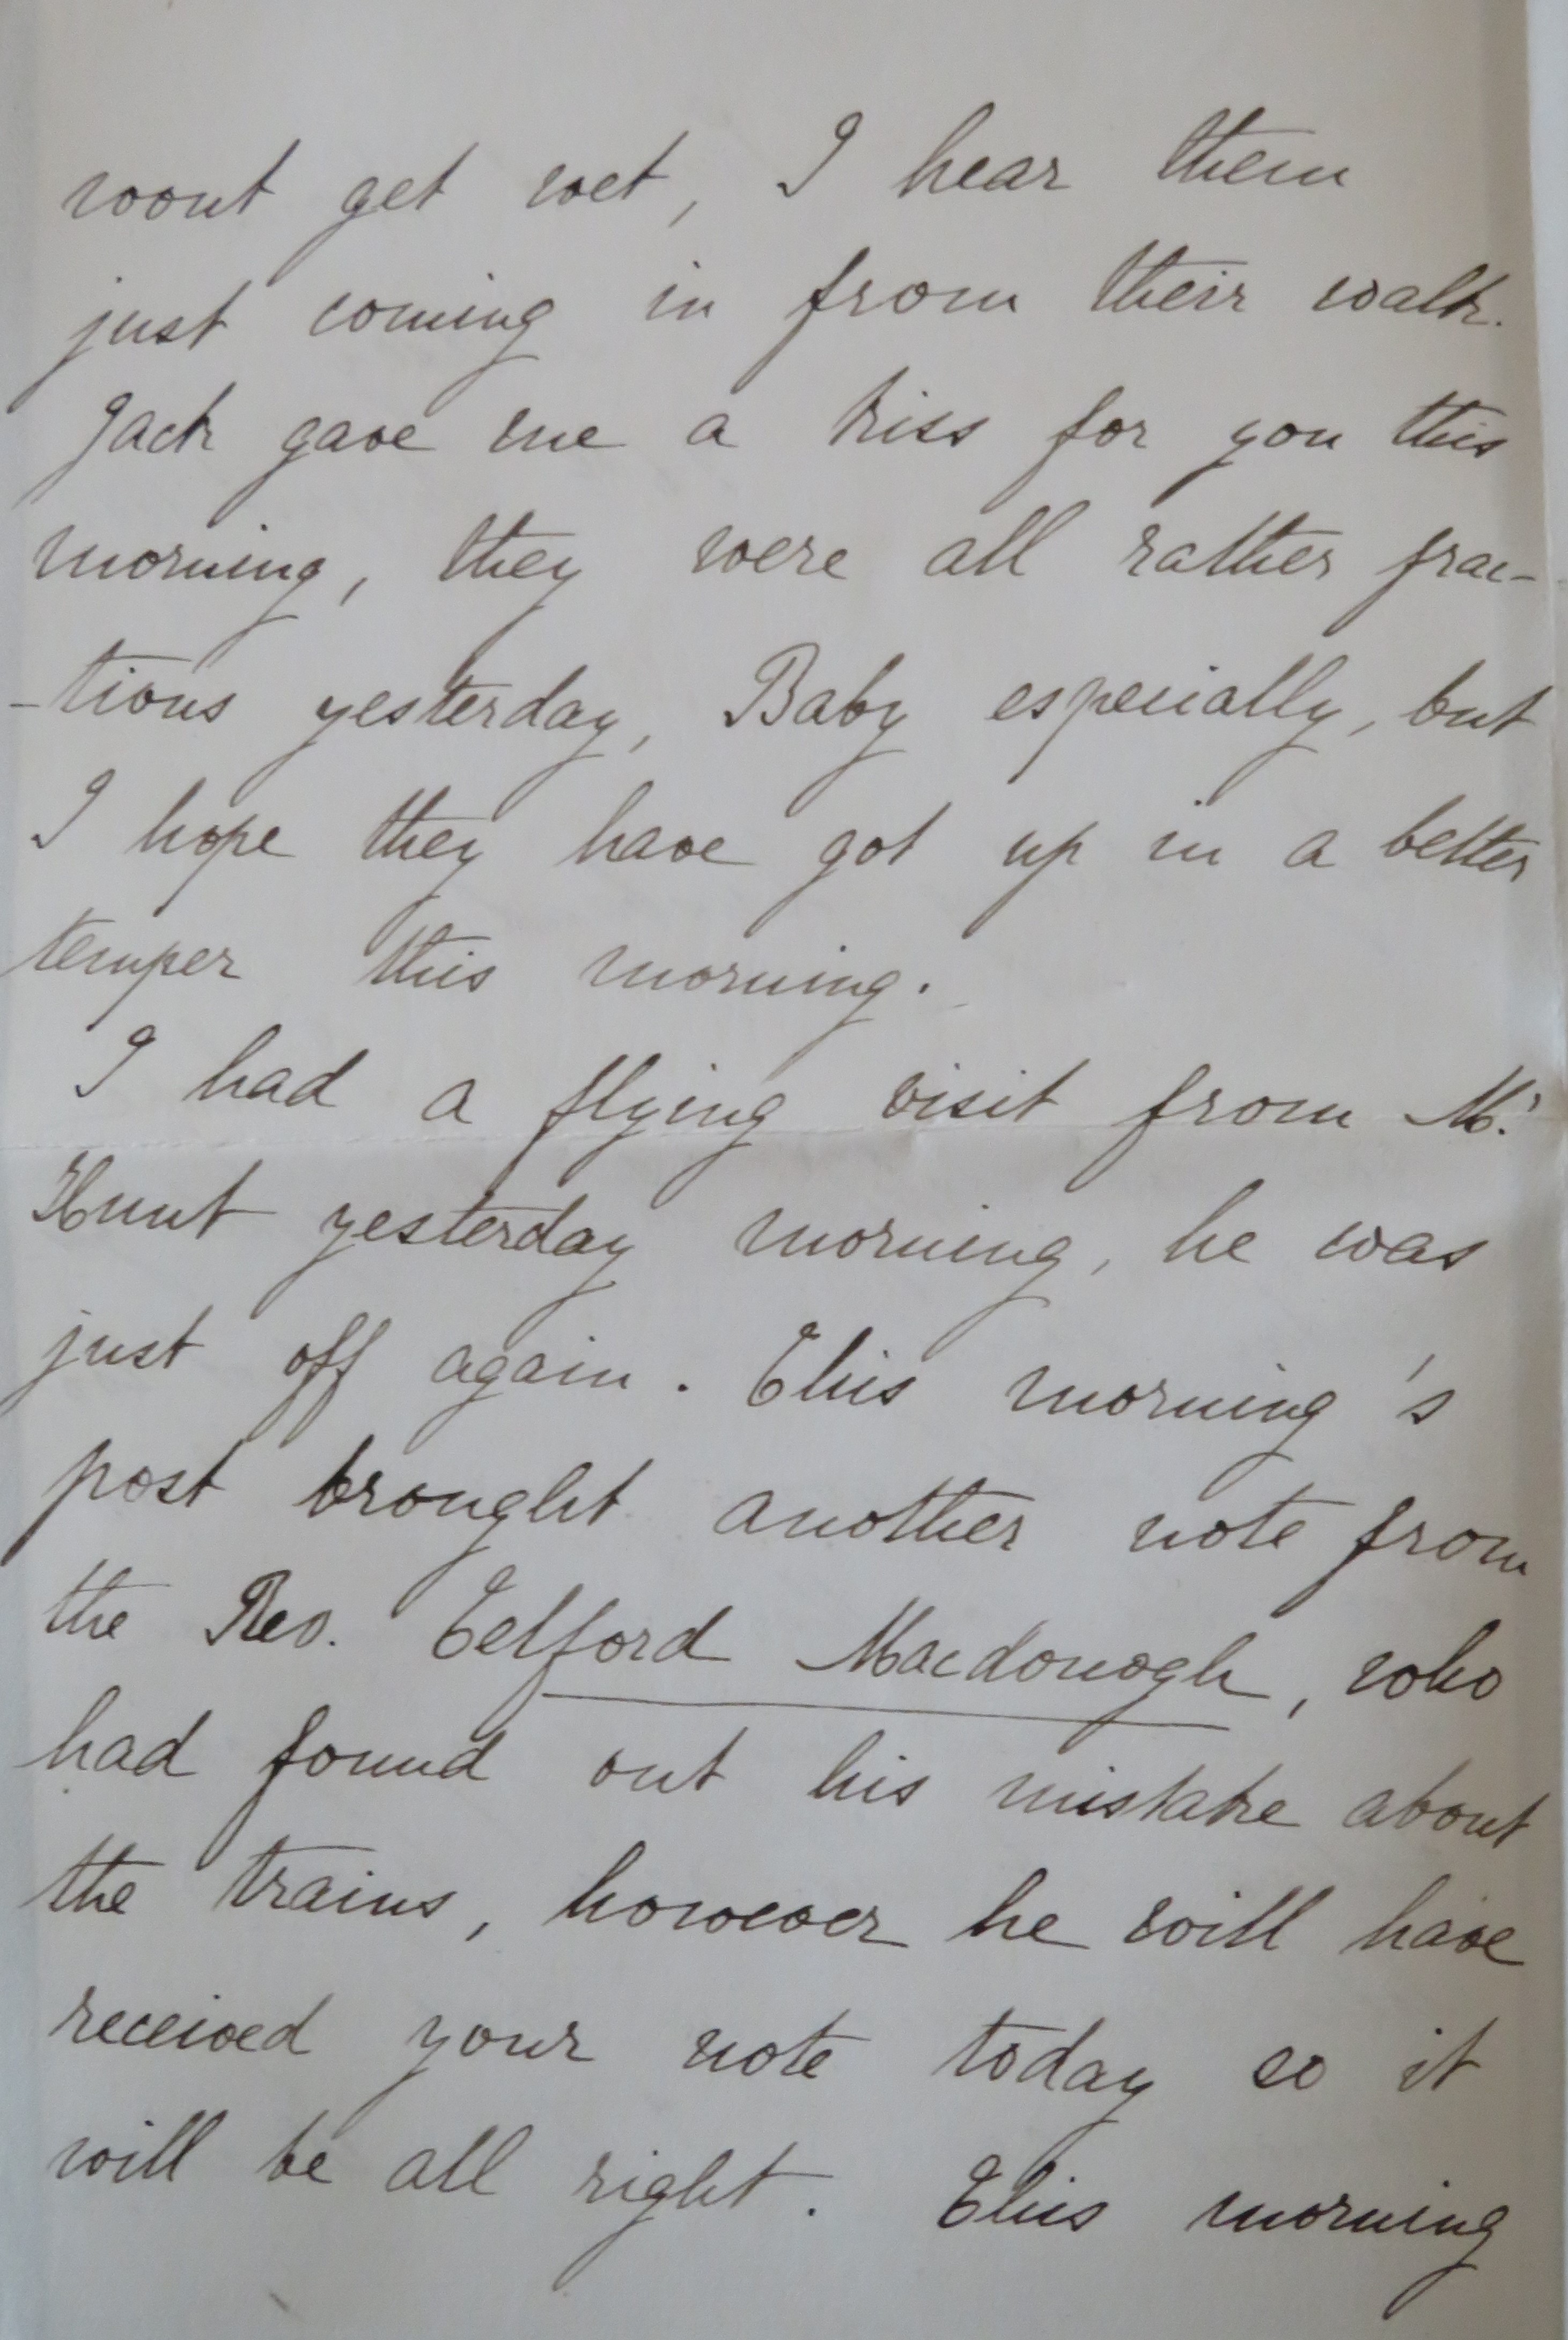 wont get wet, I hear them
just coming in from their walk.
Jack gave me a kiss for you this
morning, they were all rather frac-
-tious yesterday, Baby especially, but
I hope they have got up in a better
temper this morning.
I had a flying visit from Mr.
Hunt yesterday morning, he was
just off again. This morning's
post brought another note from
the Rev. Telford Macdonogh, who
had found out his mistake about
the trains, however he will have
received your note today so it
will be all right. This morning